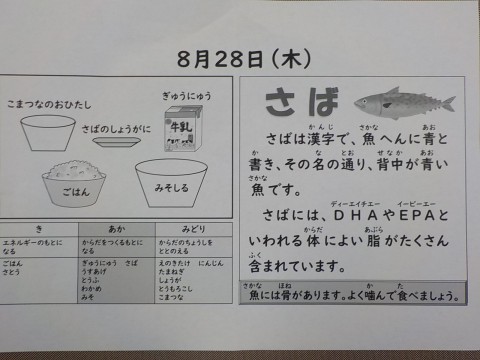 8月28日(木)
こまつなのおひたし
ぎゅうにゅう
牛乳
さばのしょうがに
ごはん
みそしる
き
あか
みどり
エネルギーのもとに
なる
からだをつくるもとに
なる
からだのちょうしを
ととのえる
ごはん
さとう
ぎゅうにゅう さば
うすあげ
とうふ
わかめ
みそ
えのきたけ にんじん
たまねぎ
しょうが
とうもろこし
こまつな
さば
かんじ さかな あお
さばは漢字で、魚へんに青と
か な とお せなか あお
書き、その名の通り、背中が青い
さかな
魚です。
ディーエイチエー イーピーエー
さばには、DHAやEPAと
からだ あぶら
いわれる体によい脂がたくさん
ふく
含まれています。
さかな ほね か た
魚には骨があります。よく噛んで食べましょう。